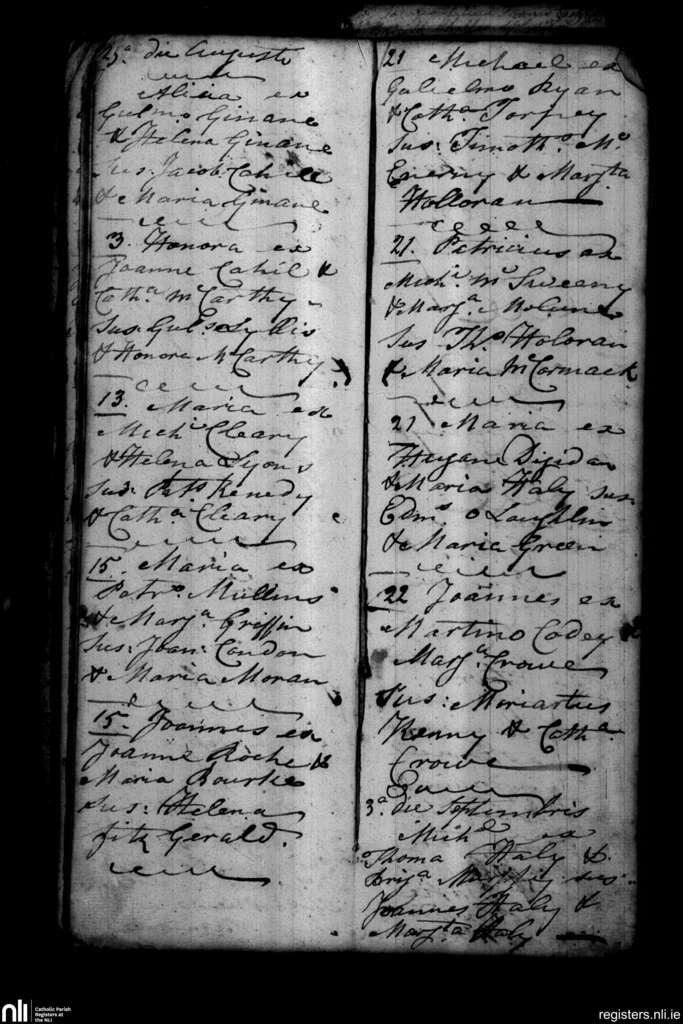 25ª die Augusti
Alicia ex
Gulmo Ginane
& Helena Ginane
Sus: Jacob: Cahill
& Maria Ginane
3. Honora ex
Joanne Cahil &
Cathª McCarthy
Sus: Gulˢ Lyllis
& Honora McCarthy
13. Maria ex
Michˡ Cleary
& Helena Lyons
Sus: Patˢ Kenedy
& Cathª Cleary
15. Maria ex
Patrº. Mullins
& Margª Griffin
Sus: Joan: Condon
& Maria Moran
15. Joannes ex
Joanne Roche &
Maria Bourke
Sus: Helena
fitz Gerald.
21 Michael ex
Gulielmo Ryan
& Cathª Torpey
Sus: Timothº. Mᶜ
Enerny & Margᵗᵃ
Holloran
21. Patricius ex
Michˡ McSweeny
& Margª.
Sus Thˢ Holoran
& Maria McCormack
21 Maria ex
& Maria Haly sus:
Edmˢ. O Laughlin
& Maria Green
22 Joannes ex
Martino Codey
Margª. Crowe
Sus: Moriartus
Kenny & Cathª
Crowe
3ª. die Septembris
Michˡ ex
Thoma Haly &
Brigª Murphy sus:
Joannes Haly &
Margᵗᵃ Haly
nli
Catholic Parish
Registers at
the NLI
registers.nli.ie